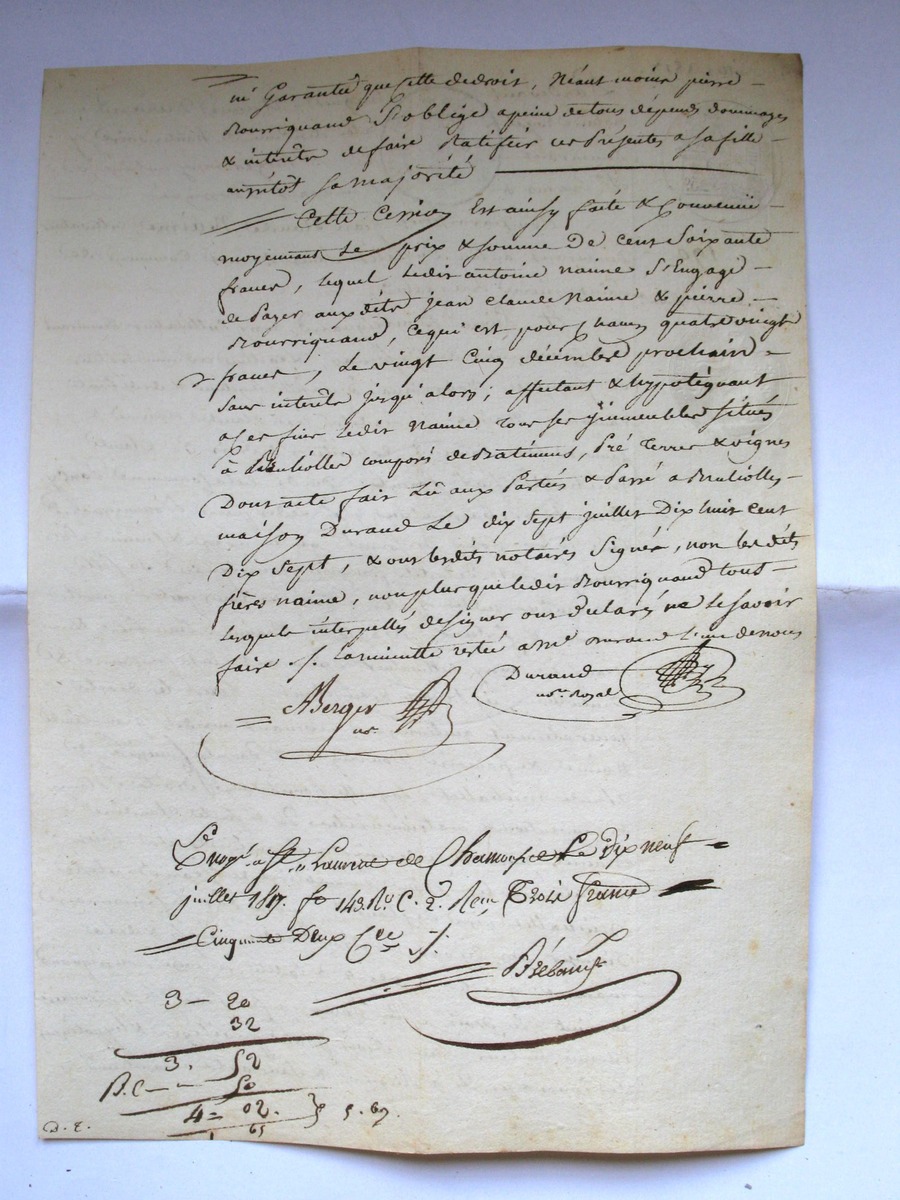 ni Garantie que celle de droit, Néant moins pierre
Rourriquand s'oblige a peine de tous dépends dommages
& interêts de faire Ratifiér ces Présentes a sa fille
aussitôt sa majorité
Cette Cession Est ainsy faite & Convenüe
moyennant Le prix & somme De cent Soixante
francs, lequel ledit antoine naime S'Engage
de Payer auxdits jean claude Naime & pierre
Rourriquand, ce qui est pour Chacun quatre vingt
francs, Le vingt Cinq décembre prochain
Sans interêts jusqu'alors; affectant & hypotéquant
a Ces fins ledit Naime Tous ses jmmeubles Situés
à composés de Batimens, Pré Terres & vignes
Dont acte fait Lû aux Parties & Passé a
maison Durand Le dix sept juillet Dix huit cent
Dix Sept, & ont lesdits notaires Signés, non lesdits
frères naime, non plus que ledit Rourriquand tous
lesquels interpellés de signer ont déclaré ne le savoir
faire ./. La minutte restée a Me Durand L'un de nous
Berger
nore
Durand
nore Royal
Enregé a St Laurent de Chamousset Le Dix neuf
juillet 1817. fo 143. Ro C. 2. Reçu Trois francs
Cinquante Deux Ces ./.
3 — 20
32
3. 52
50
4 = 02. 5. 67.
1 65
D. E.